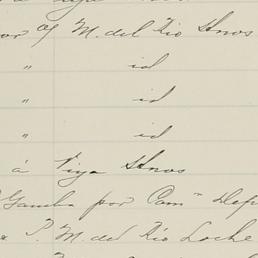 or of M. del Rio Hnos
" id
" id
" id
á Viya Hnos
Gamba por Comⁿ
P. M. del Rio Loche